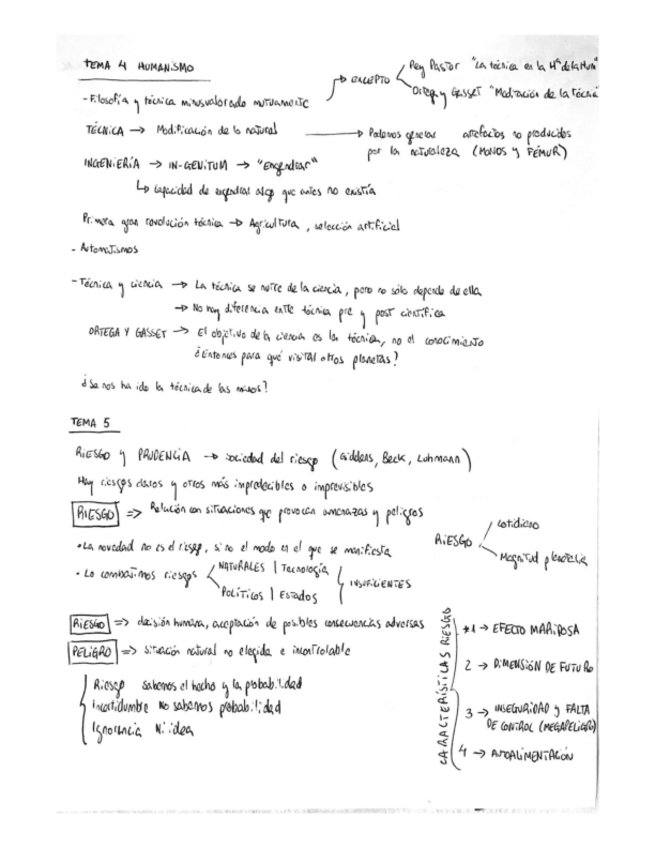 TEMA 4 HUMANISMO
- Filosofía y técnica minusvalorado mutuamente → EXCEPTO
Rey Pastor "La técnica en la Hª de la Hum"
Ortega y Gasset "Meditación de la técnica
TÉCNICA → Modificación de lo natural → Podemos generar artefactos no producidos
por la naturaleza (MONOS Y FÉMUR)
INGENIERÍA → IN-GENITUM → "Engendrar"
↳ capacidad de engendrar algo que antes no existía
Primera gran revolución técnica → Agricultura, selección artificial
- Automatismos
- Técnica y ciencia → La técnica se nutre de la ciencia, pero no sólo depende de ella
→ No hay diferencia entre técnica pre y post científica
ORTEGA Y GASSET → El objetivo de la ciencia es la técnica, no el conocimiento
¿Entonces para qué visitar otros planetas?
¿Se nos ha ido la técnica de las manos?
TEMA 5
RIESGO y PRUDENCIA → sociedad del riesgo (Giddens, Beck, Luhmann)
Hay riesgos claros y otros más impredecibles o imprevisibles
RIESGO => Relación con situaciones que provocan amenazas y peligros
RIESGO
cotidiano
Magnitud planetaria
• La novedad no es el riesgo, si no el modo en el que se manifiesta
• Lo combatimos riesgos
NATURALES | Tecnología
POLÍTICOS | ESTADOS
INSUFICIENTES
RIESGO => decisión humana, aceptación de posibles consecuencias adversas
PELIGRO => situación natural no elegida e incontrolable
Riesgo sabemos el hecho y la probabilidad
Incertidumbre No sabemos probabilidad
Ignorancia Ni idea
CARACTERÍSTICAS RIESGO
*1 → EFECTO MARIPOSA
2 → DIMENSIÓN DE FUTURO
3 → INSEGURIDAD y FALTA
DE CONTROL (MEGAPELIGRO)
4 → AUTOALIMENTACIÓN